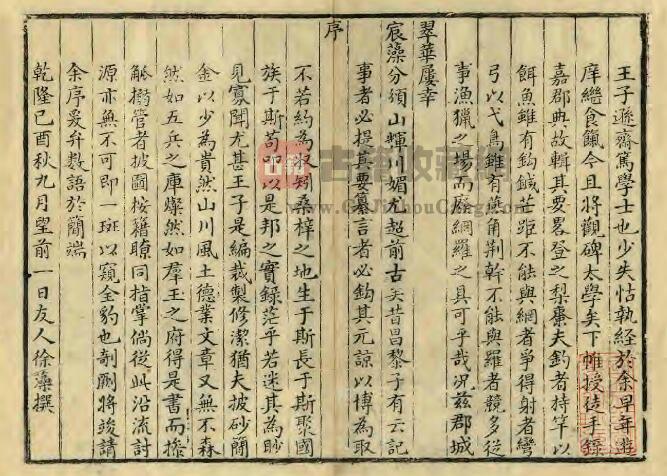 王子遜齋篤學士也少失怙執經於余早年遊
庠繼食餼今且將觀碑太學矣下帷授徒手錄
嘉郡典故輯其要畧登之梨棗夫釣者持竿以
餌魚雖有鈎鍼芒距不能與網者爭得射者彎
弓以弋鳥雖有燕角荆幹不能與羅者競多從
事漁獵之場而廢網羅之具可乎哉况兹郡城
翠華屢幸
宸藻分須山輝川媚尤超前古矣昔昌黎子有云記
事者必提其要纂言者必鈎其元諒以博為取
序
不若約為收矧桑梓之地生于斯長于斯聚國
族于斯苟即以是邦之實錄茫乎若迷其為眇
見寡聞尤甚王子是編裁製修潔猶夫披砂蕑
金以少為貴然山川風土德業文章又無不森
然如五兵之庫燦然如羣玉之府得是書而捻
觚搦管者披圖按籍瞭同指掌倘從此沿流討
源亦無不可即一斑以窺全豹也剞劂將竣請
余序爰弁數語於簡端
乾隆己酉秋九月望前一日友人徐藻撰
古籍收藏網
www.GuJiShouCang.com